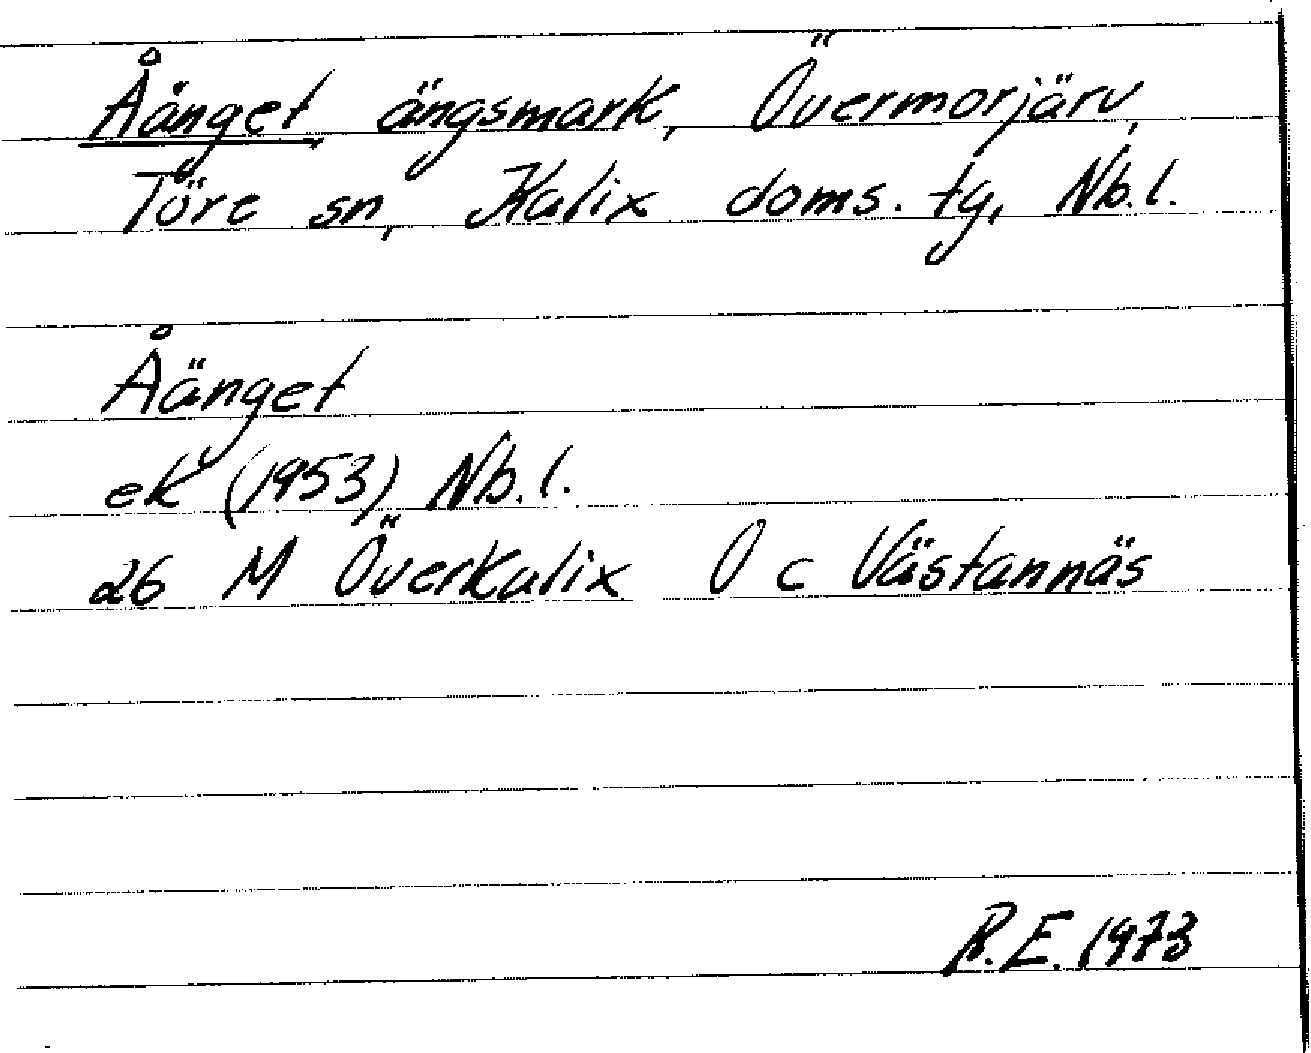 Åänget, ängsmark, Övermorjärv,
Töre sn, Kalix doms. tg, Nb.l.
Åänget
ek (1953) Nb.l.
26 M Överkalix O c Västannäs
R.E. 1973